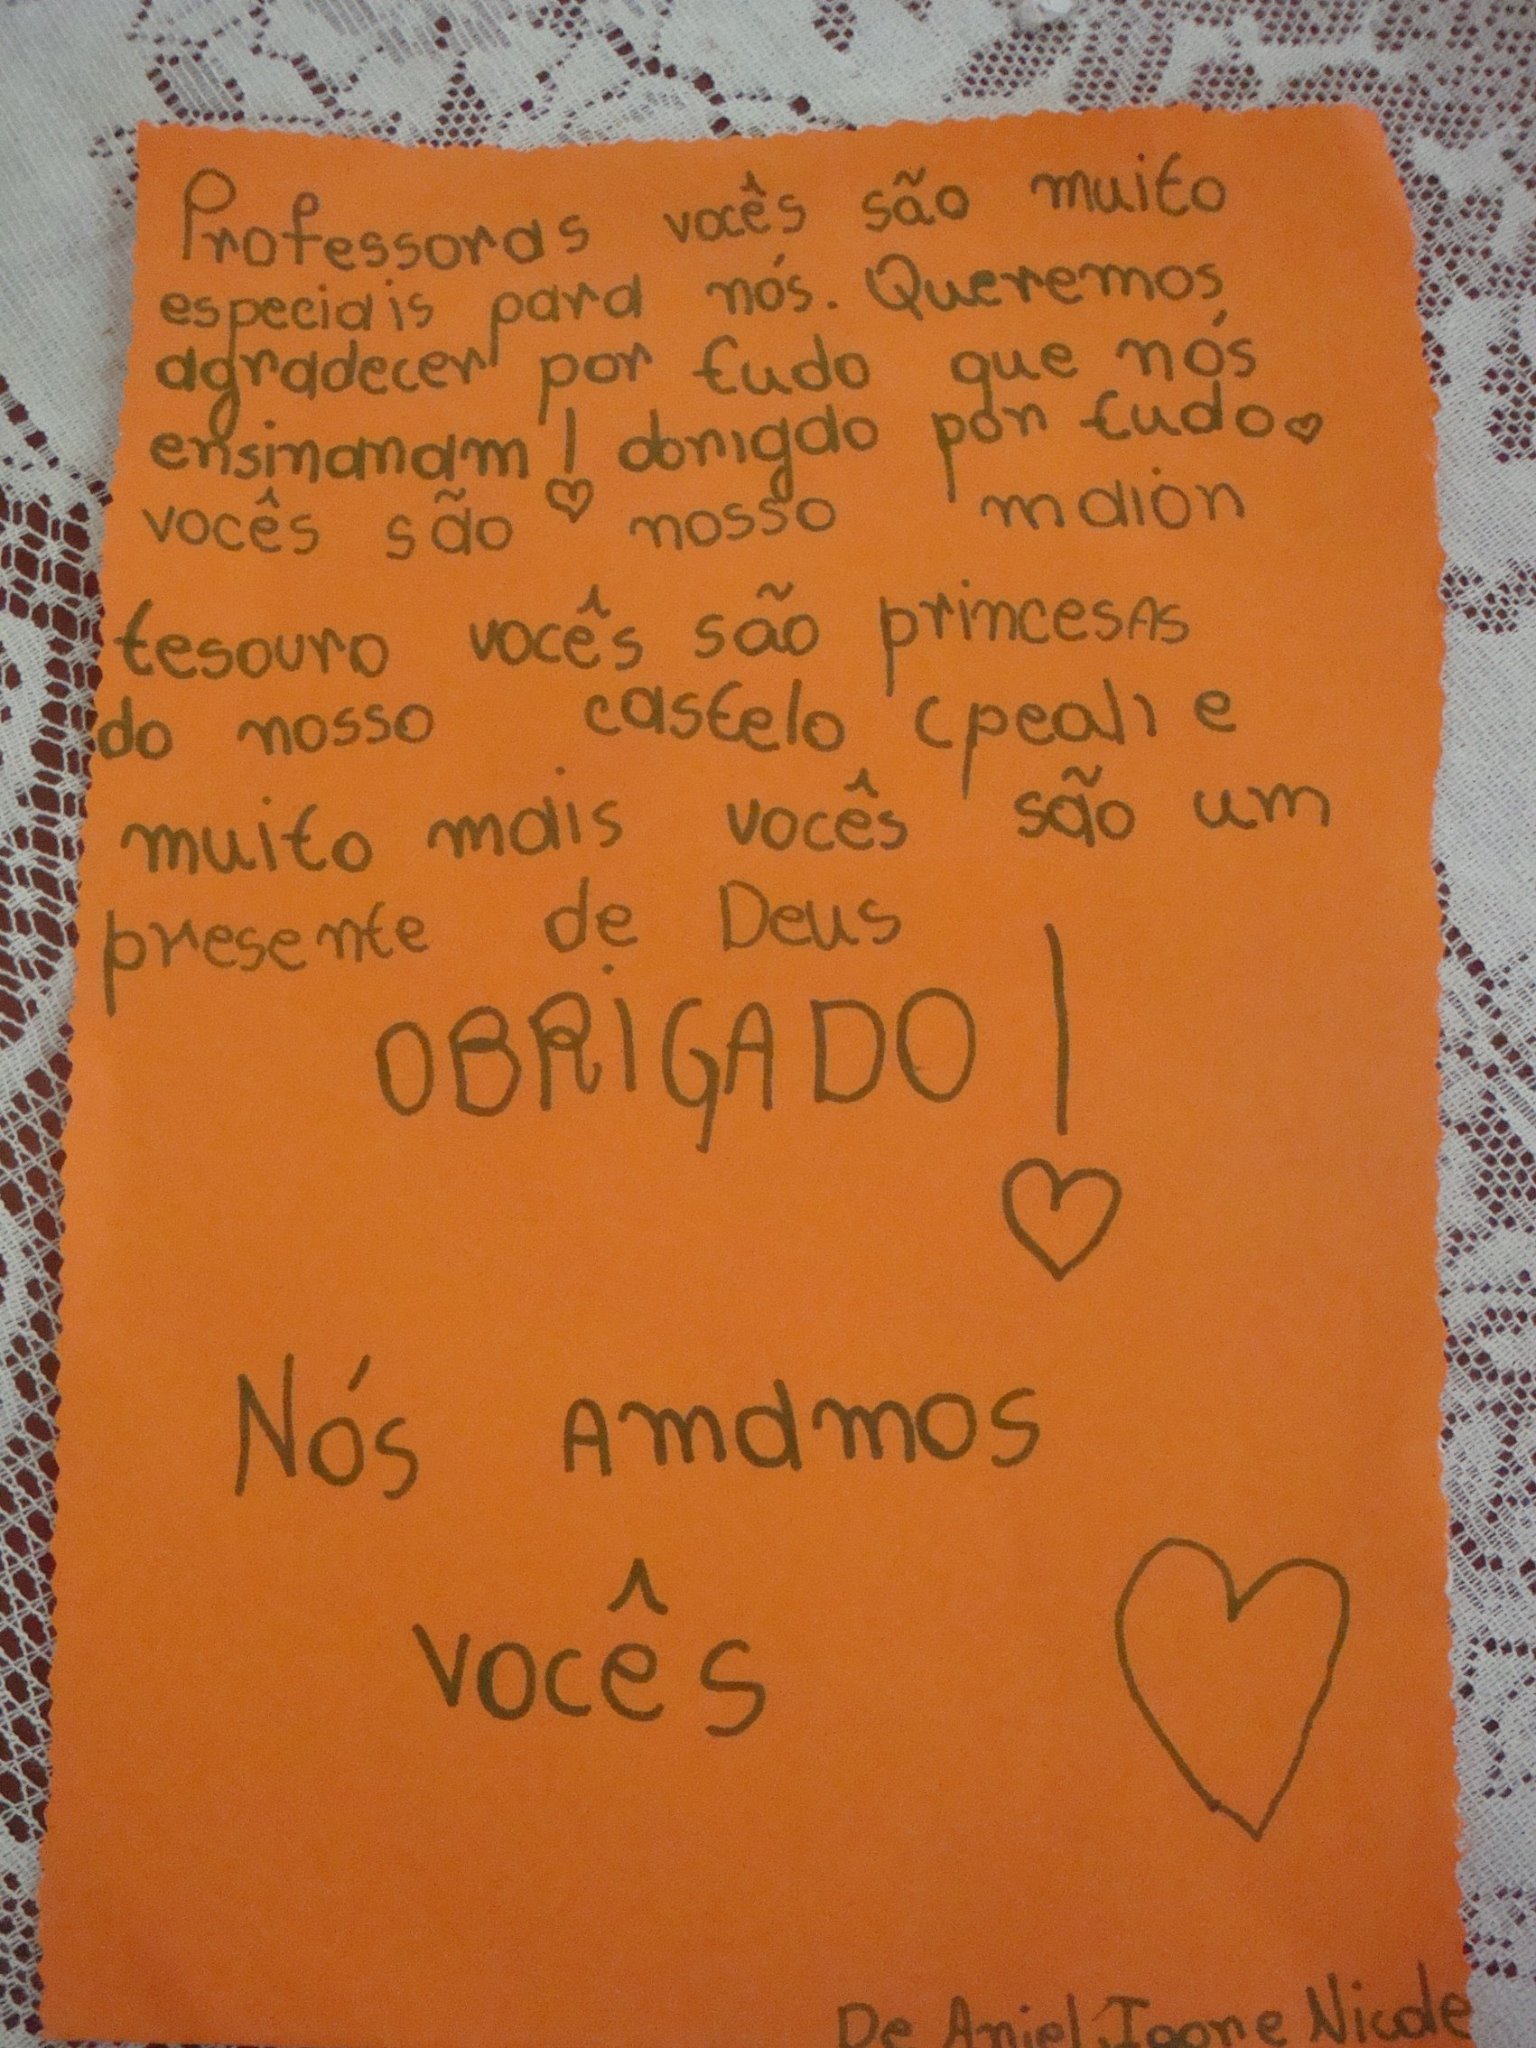 Professoras vocês são muito
especiais para nós. Queremos
agradecer por tudo que nós
ensinaram! obrigado por tudo
vocês são nosso maior
tesouro vocês são princesas
do nosso castelo (peal) e
muito mais vocês são um
presente de Deus
OBRIGADO!
Nós amamos
vocês
De Aniel, Igor e Nicole